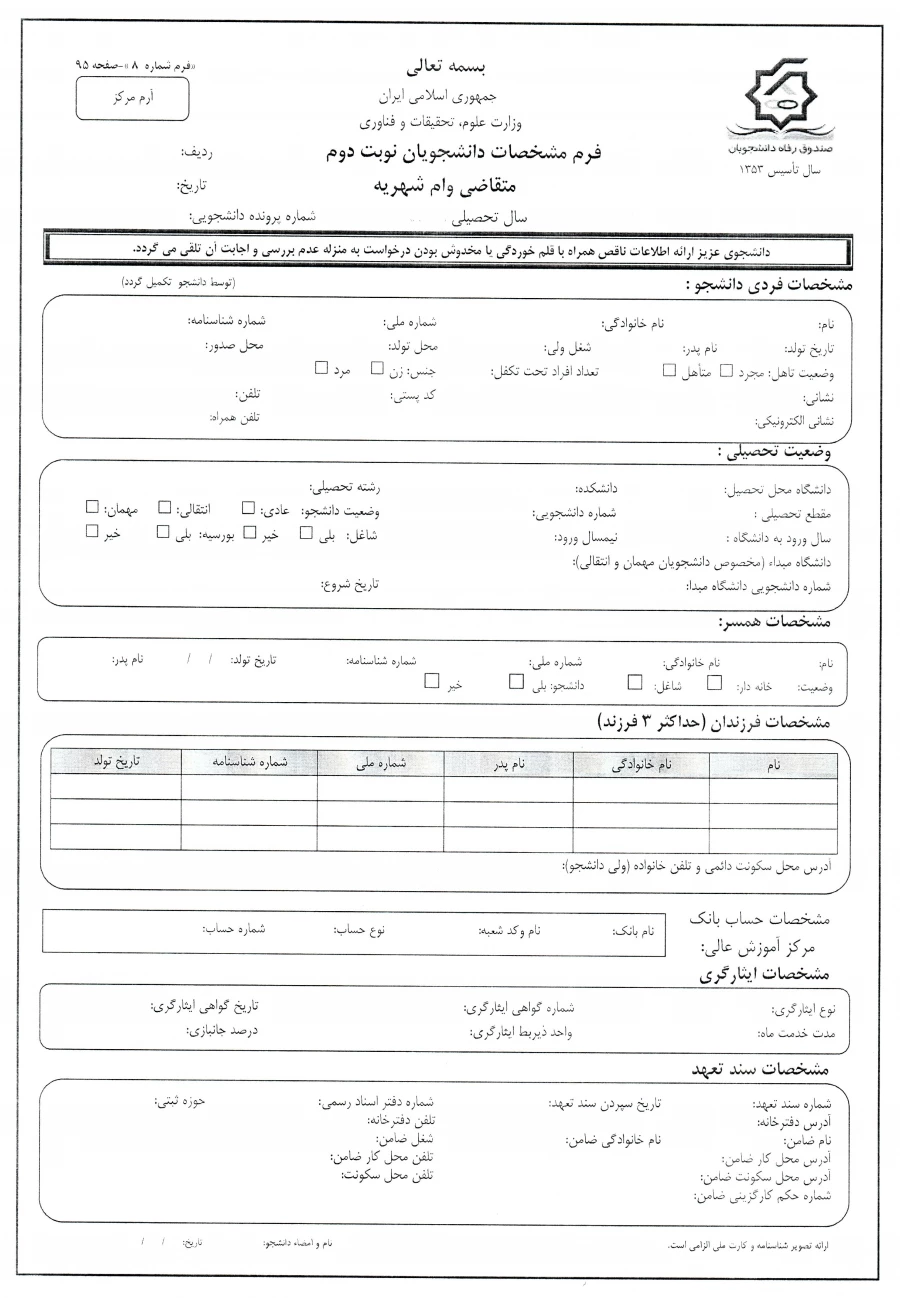 بسمه تعالی
«فرم شماره ۸»-صفحه ۹۵
جمهوری اسلامی ایران
آرم مرکز
وزارت علوم، تحقیقات و فناوری
صندوق رفاه دانشجویان
فرم مشخصات دانشجویان نوبت دوم
ردیف:
سال تأسیس ۱۳۵۳
متقاضی وام شهریه
تاریخ:
سال تحصیلی
شماره پرونده دانشجویی:
دانشجوی عزیز ارائه اطلاعات ناقص همراه با قلم خوردگی یا مخدوش بودن درخواست به منزله عدم بررسی و اجابت آن تلقی می گردد.
مشخصات فردی دانشجو : (توسط دانشجو تکمیل گردد)
نام: نام خانوادگی: شماره ملی: شماره شناسنامه:
تاریخ تولد: نام پدر: شغل ولی: محل تولد: محل صدور:
وضعیت تاهل: مجرد □ متأهل □ تعداد افراد تحت تکفل: جنس: زن □ مرد □
نشانی: کد پستی: تلفن:
نشانی الکترونیکی: تلفن همراه:
وضعیت تحصیلی :
دانشگاه محل تحصیل: دانشکده: رشته تحصیلی:
مقطع تحصیلی : شماره دانشجویی: وضعیت دانشجو: عادی: □ انتقالی: □ مهمان: □
سال ورود به دانشگاه : نیمسال ورود: شاغل: بلی □ خیر □ بورسیه: بلی □ خیر □
دانشگاه مبداء (مخصوص دانشجویان مهمان و انتقالی):
شماره دانشجویی دانشگاه مبدا: تاریخ شروع:
مشخصات همسر:
نام: نام خانوادگی: شماره ملی: شماره شناسنامه: تاریخ تولد: / / نام پدر:
وضعیت: خانه دار: □ شاغل: □ دانشجو: بلی □ خیر □
مشخصات فرزندان (حداکثر ۳ فرزند)
نام نام خانوادگی نام پدر شماره ملی شماره شناسنامه تاریخ تولد
آدرس محل سکونت دائمی و تلفن خانواده (ولی دانشجو):
مشخصات حساب بانک
نام بانک: نام وکد شعبه: نوع حساب: شماره حساب:
مرکز آموزش عالی:
مشخصات ایثارگری
نوع ایثارگری: شماره گواهی ایثارگری: تاریخ گواهی ایثارگری:
مدت خدمت ماه: واحد ذیربط ایثارگری: درصد جانبازی:
مشخصات سند تعهد
شماره سند تعهد: تاریخ سپردن سند تعهد: شماره دفتر اسناد رسمی: حوزه ثبتی:
آدرس دفترخانه: تلفن دفترخانه:
نام ضامن: نام خانوادگی ضامن: شغل ضامن:
آدرس محل کار ضامن: تلفن محل کار ضامن:
آدرس محل سکونت ضامن: تلفن محل سکونت:
شماره حکم کارگزینی ضامن:
ارائه تصویر شناسنامه و کارت ملی الزامی است. نام و امضاء دانشجو: تاریخ: / /